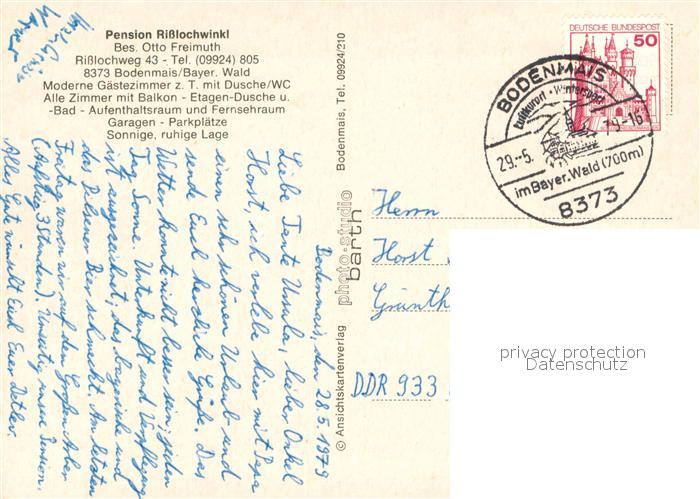 Pension Rißlochwinkl
Bes. Otto Freimuth
Rißlochweg 43 - Tel. (09924) 805
8373 Bodenmais/Bayer. Wald
Moderne Gästezimmer z. T. mit Dusche/WC
Alle Zimmer mit Balkon - Etagen-Dusche u.
-Bad - Aufenthaltsraum und Fernsehraum
Garagen - Parkplätze
Sonnige, ruhige Lage
Bodenmais, den 28.5.1979
Liebe Tante Ursula, lieber Onkel
Horst, ich verlebe hier mit Papa
einen sehr schönen Urlaub und
sende Euch herzliche Grüße. Das
Wetter konnte nicht besser sein; jeden
Tag Sonne. Unterkunft und Verpflegung
ist ausgezeichnet; das bayrische und
das Pilsener Bier schmeckt. Am letzten
Freitag waren wir auf den Großen Arber
(Aufstieg 3 Stunden). Umseitig unsere Pension.
Alles Gute wünscht Euch Euer Detlev.
© Ansichtskartenverlag
photo-studio
barth
Bodenmais, Tel. 09924/210
DEUTSCHE BUNDESPOST
50
BODENMAIS
Luftkurort - Wintersport
29.-5. 79-16
im Bayer. Wald (700m)
8373
Herrn
Horst
Günth
DDR 933
privacy protection
Datenschutz